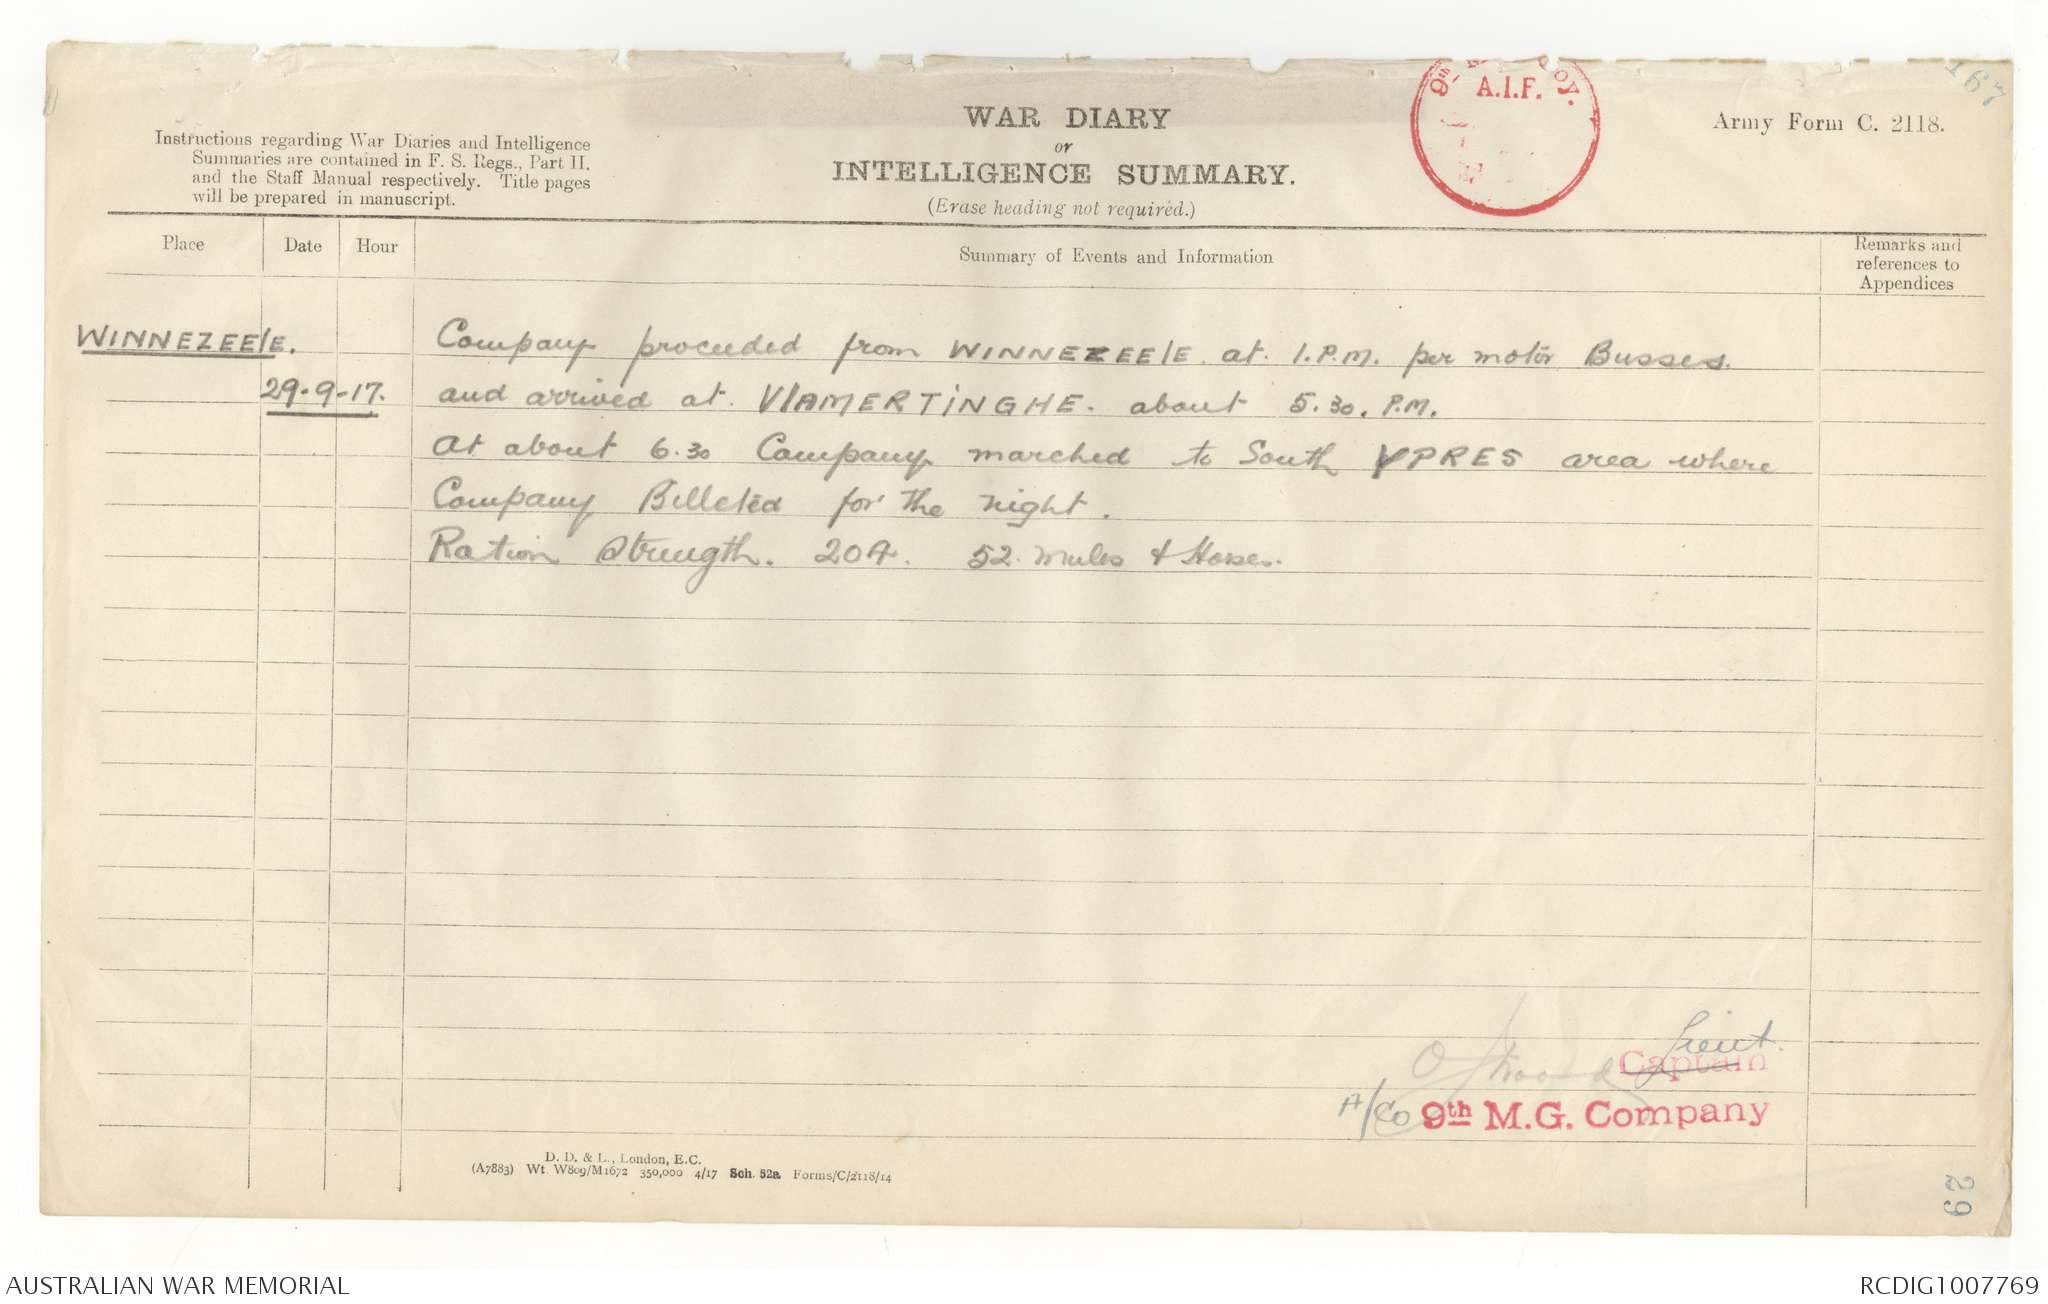 167
9th Coy.
A.I.F.
Army Form C. 2118.
Instructions regarding War Diaries and Intelligence
Summaries are contained in F. S. Regs., Part II.
and the Staff Manual respectively. Title pages
will be prepared in manuscript.
WAR DIARY
or
INTELLIGENCE SUMMARY.
(Erase heading not required.)
Place
Date
Hour
Summary of Events and Information
Remarks and
references to
Appendices
WINNEZEElE.
29-9-17.
Company proceeded from WINNEZEElE at. 1.P.M. per motor Busses.
and arrived at VlAMERTiNGHE. about 5.30. P.M.
At about 6.30 Company marched to South YPRES area where
Company Billeted for the night.
Ration Strength. 204. 52. Mules & Horses.
Lieut.
Captain
A/Co 9th M.G. Company
D. D. & L., London, E.C.
(A7883) Wt. W809/M1672 350,000 4/17 Sch. 52a Forms/C/2118/14
29
AUSTRALIAN WAR MEMORIAL
RCDIG1007769